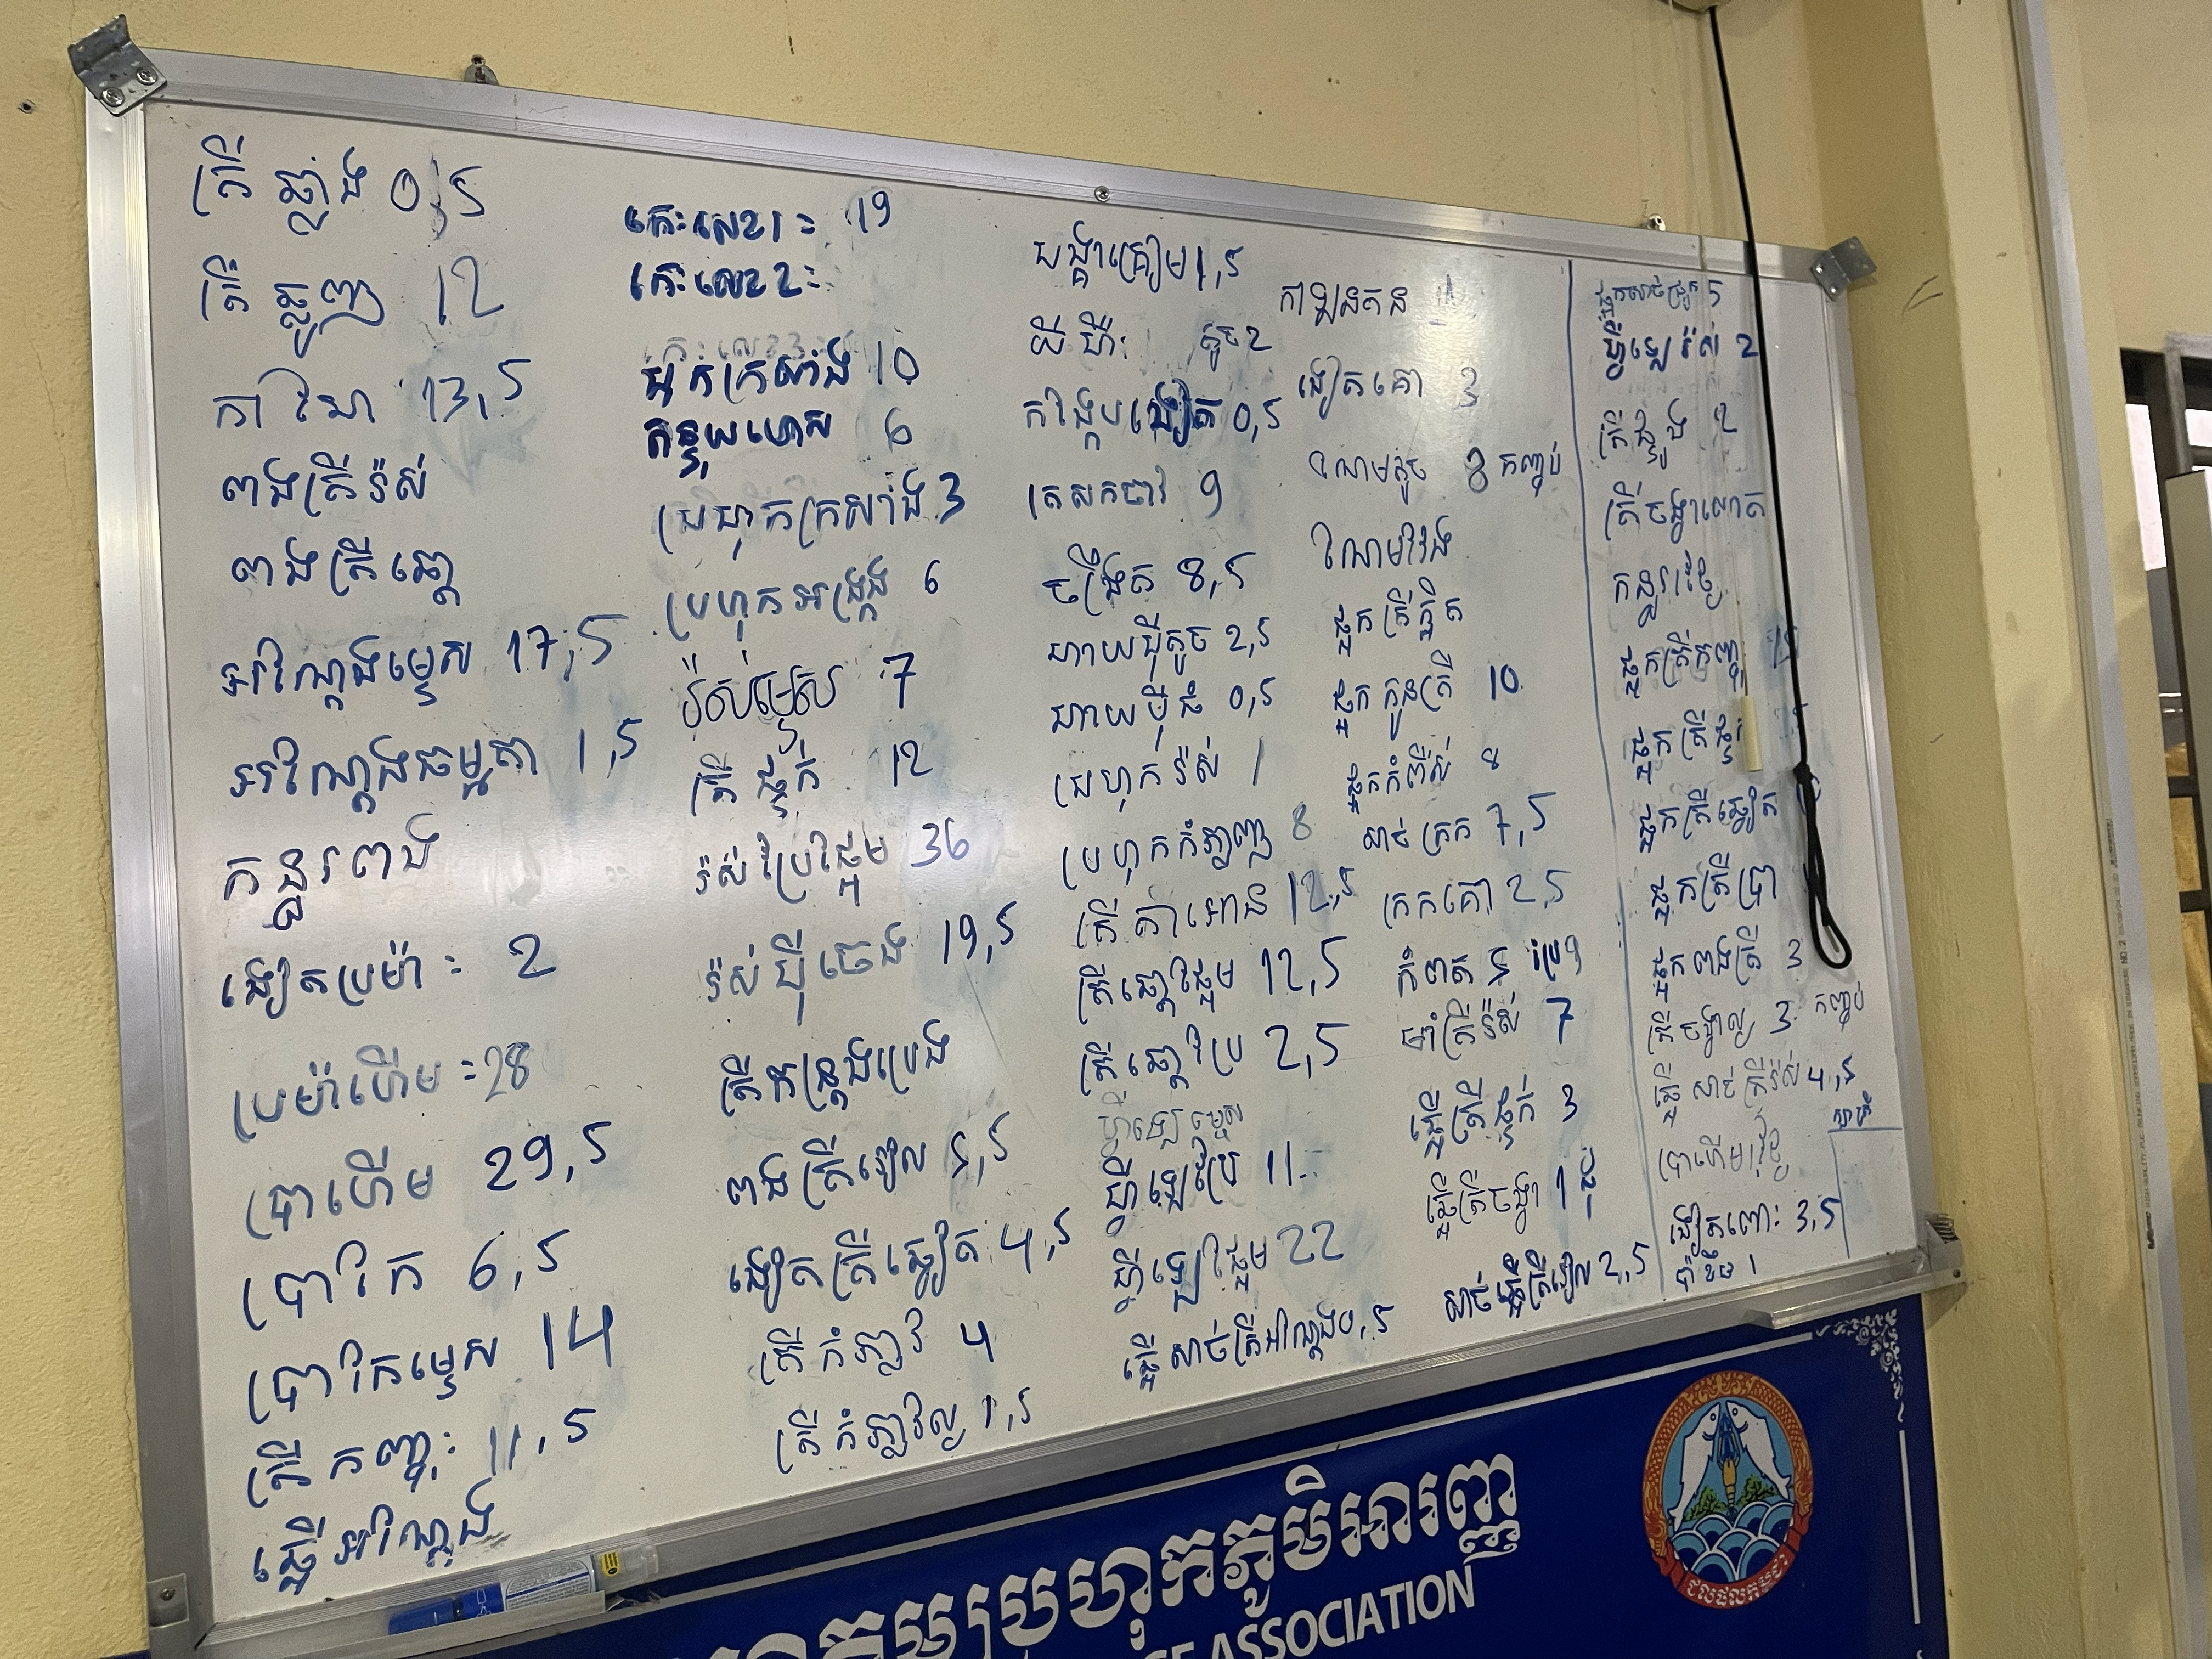 ត្រីឆ្លាំង 0,5
ត្រីឆ្លូញ 12
កាហែ 13,5
ពងត្រីរ៉ស់
ពងត្រីឆ្តោ
អណ្តែងម្ទេស 17,5
អណ្តែងធម្មតា 1,5
កន្ធរពង
ងៀតប្រម៉ា = 2
ប្រម៉ាហើម = 28
ប្រាហើម 29,5
ប្រាកែ 6,5
ប្រាកែម្ទេស 14
ត្រីកញ្ចុះ 11,5
ផ្អើអណ្តែង
កេះលេខ1 = 19
កេះលេខ2 =
ម៉ក់ក្រសាំង 10
កន្ទុយហោស 6
ប្រហុកក្រសាំង 3
ប្រហុកអង្រ្កង 6
រ៉ស់ម្ទេស 7
ត្រីផ្ទក់ 12
រ៉ស់ប្រៃផ្អែម 36
រ៉ស់ប៊ីចេង 19,5
ត្រីកន្ត្រងប្រេង
ពងត្រីរៀល 5,5
ងៀតត្រីឆ្វៀត 4,5
ត្រីកំភ្លាវ 4
ត្រីកំភ្លាវល្ង 1,5
បង្គាគ្រៀម 1,5
យីហឺ: តូច 2
កង្កែបងៀត 0,5
ត្រសក់ចាវ 9
ចង្រឹត 8,5
ហាយប៊ីតូច 2,5
ហាយប៊ីធំ 0,5
ប្រហុករ៉ស់ 1
ប្រហុកកំភ្លាញ 8
ត្រីតាអោន 12,5
ត្រីឆ្តោផ្អែម 12,5
ត្រីឆ្តោប្រៃ 2,5
ហ្វីឡេម្ទេស
ហ្វីឡេប្រៃ 11
ហ្វីឡេផ្អែម 22
ផ្អើសាច់ត្រីអណ្តែង 0,5
កាឡនតន 11
ងៀតគោ 3
ណែមតូច 8 កញ្ចប់
ណែមវែង
ផ្អកត្រីភ្លឹត
ផ្អកកូនត្រី 10
ផ្អកកំពឹស 8
សាច់ក្រក 7,5
ក្រកគោ 2,5
កំពត 5 ប្រៃ 9
មាំត្រីរ៉ស់ 7
ផ្អើត្រីផ្ទក់ 3
ផ្អើត្រីចង្វា 1
សាច់ផ្អើត្រីរៀល 2,5
ផ្អកសាច់ជ្រូក 5
ហ្វីឡេរ៉ស់ 2
ត្រីជ្លូង 2
ត្រីចង្វាលោត
កន្ធរថៃ
ផ្អកត្រីកញ្ចុះ
ផ្អកត្រី
ផ្អកត្រីឆ្វៀត
ផ្អកត្រីប្រា
ផ្អកពងត្រី 3
ត្រីចង្វាល្ង 3 កញ្ចប់
ផ្អើសាច់ត្រីរ៉ស់ 4,5
ប្រាហើមថៃ
ងៀតពោះ 3,5
ប៉ាខិច 1
ប្រហុកភូមិអារញ្ញ
ASSOCIATION
ជលផលកម្ពុជា